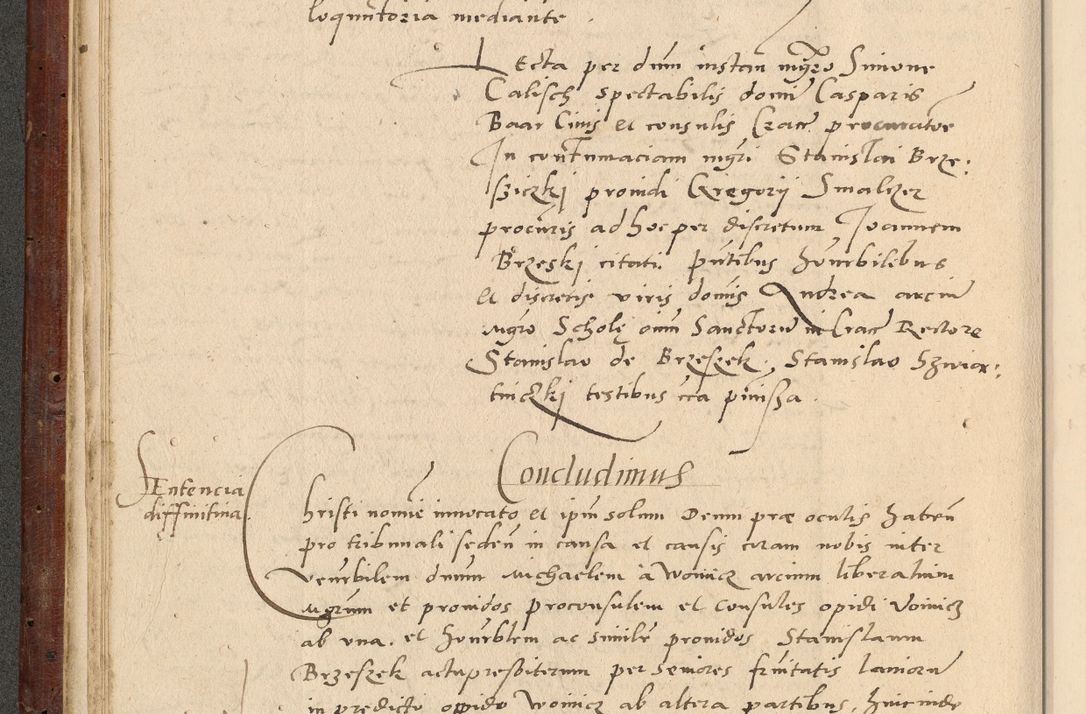 loquutoria mediante.
Lecta per dnm instan mgro Simone
Calisch spectabilis domi Casparis
Baar Civis et consulis Crac procuratore
In contumaciam mgri Stanislai Brze:
sziczkj providi Gregorij Smalczer
procuris ad hoc per discretum Joannem
Brzeskj citati. pntibus honrbilibus
et discretis viris domis Andrea arciu
mgro Scholę oim Sanctoru in Crac Rectore
Stanislao de Brzeszek, Stanislao Szwiar:
tniczkj testibus cca pmissa.
Concludimus
Sentencia
diffinitiva
Christi nomie innocato et ipm solum Deum præ oculis haten
pro tribunali seden in causa et causis coram nobis inter
Venrbilem dnum Michaelem à Woinicz arcium liberalium
Mgrum et providos proconsulem et Consules opidi Voinicz
ab una. et honrblem ac similr providos Stanislaum
Brzeszek actupresbiterum per seniores frnitatis laniorum
in predicto oppido Woinicz ab altera partibus, hincinde